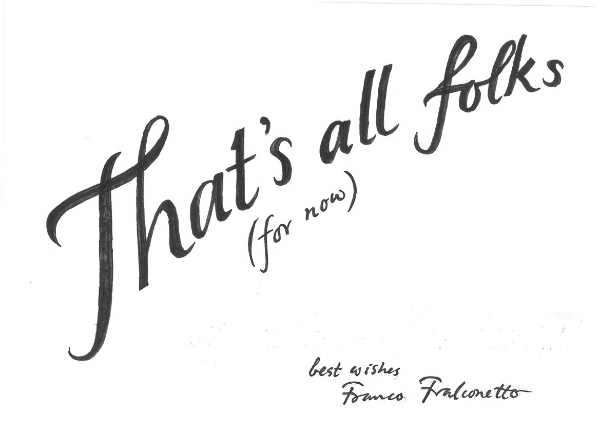 That's all folks
(for now)
best wishes
Franco Fralconetto